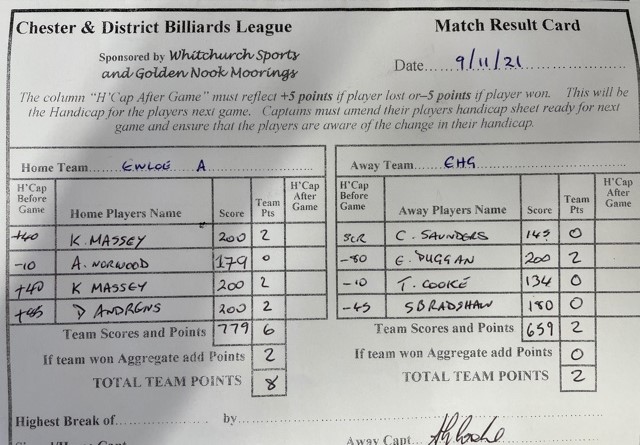 Chester & District Billiards League
Match Result Card
Sponsored by Whitchurch Sports
and Golden Nook Moorings
Date 9/11/21
The column "H'Cap After Game" must reflect +5 points if player lost or–5 points if player won. This will be
the Handicap for the players next game. Captains must amend their players handicap sheet ready for next
game and ensure that the players are aware of the change in their handicap.
Home Team EWLOE A
H'Cap Before Game Home Players Name Score Team Pts H'Cap After Game
+40 K. MASSEY 200 2
-10 A. NORWOOD 179 0
+40 K MASSEY 200 2
D ANDREWS 200 2
Team Scores and Points 779 6
If team won Aggregate add Points 2
TOTAL TEAM POINTS 8
Away Team EHG
H'Cap Before Game Away Players Name Score Team Pts H'Cap After Game
SCR C. SAUNDERS 145 0
-80 E. DUGGAN 200 2
-10 T. COOKE 134 0
-45 S BRADSHAW 180 0
Team Scores and Points 659 2
If team won Aggregate add Points 0
TOTAL TEAM POINTS 2
Highest Break of by
Away Capt